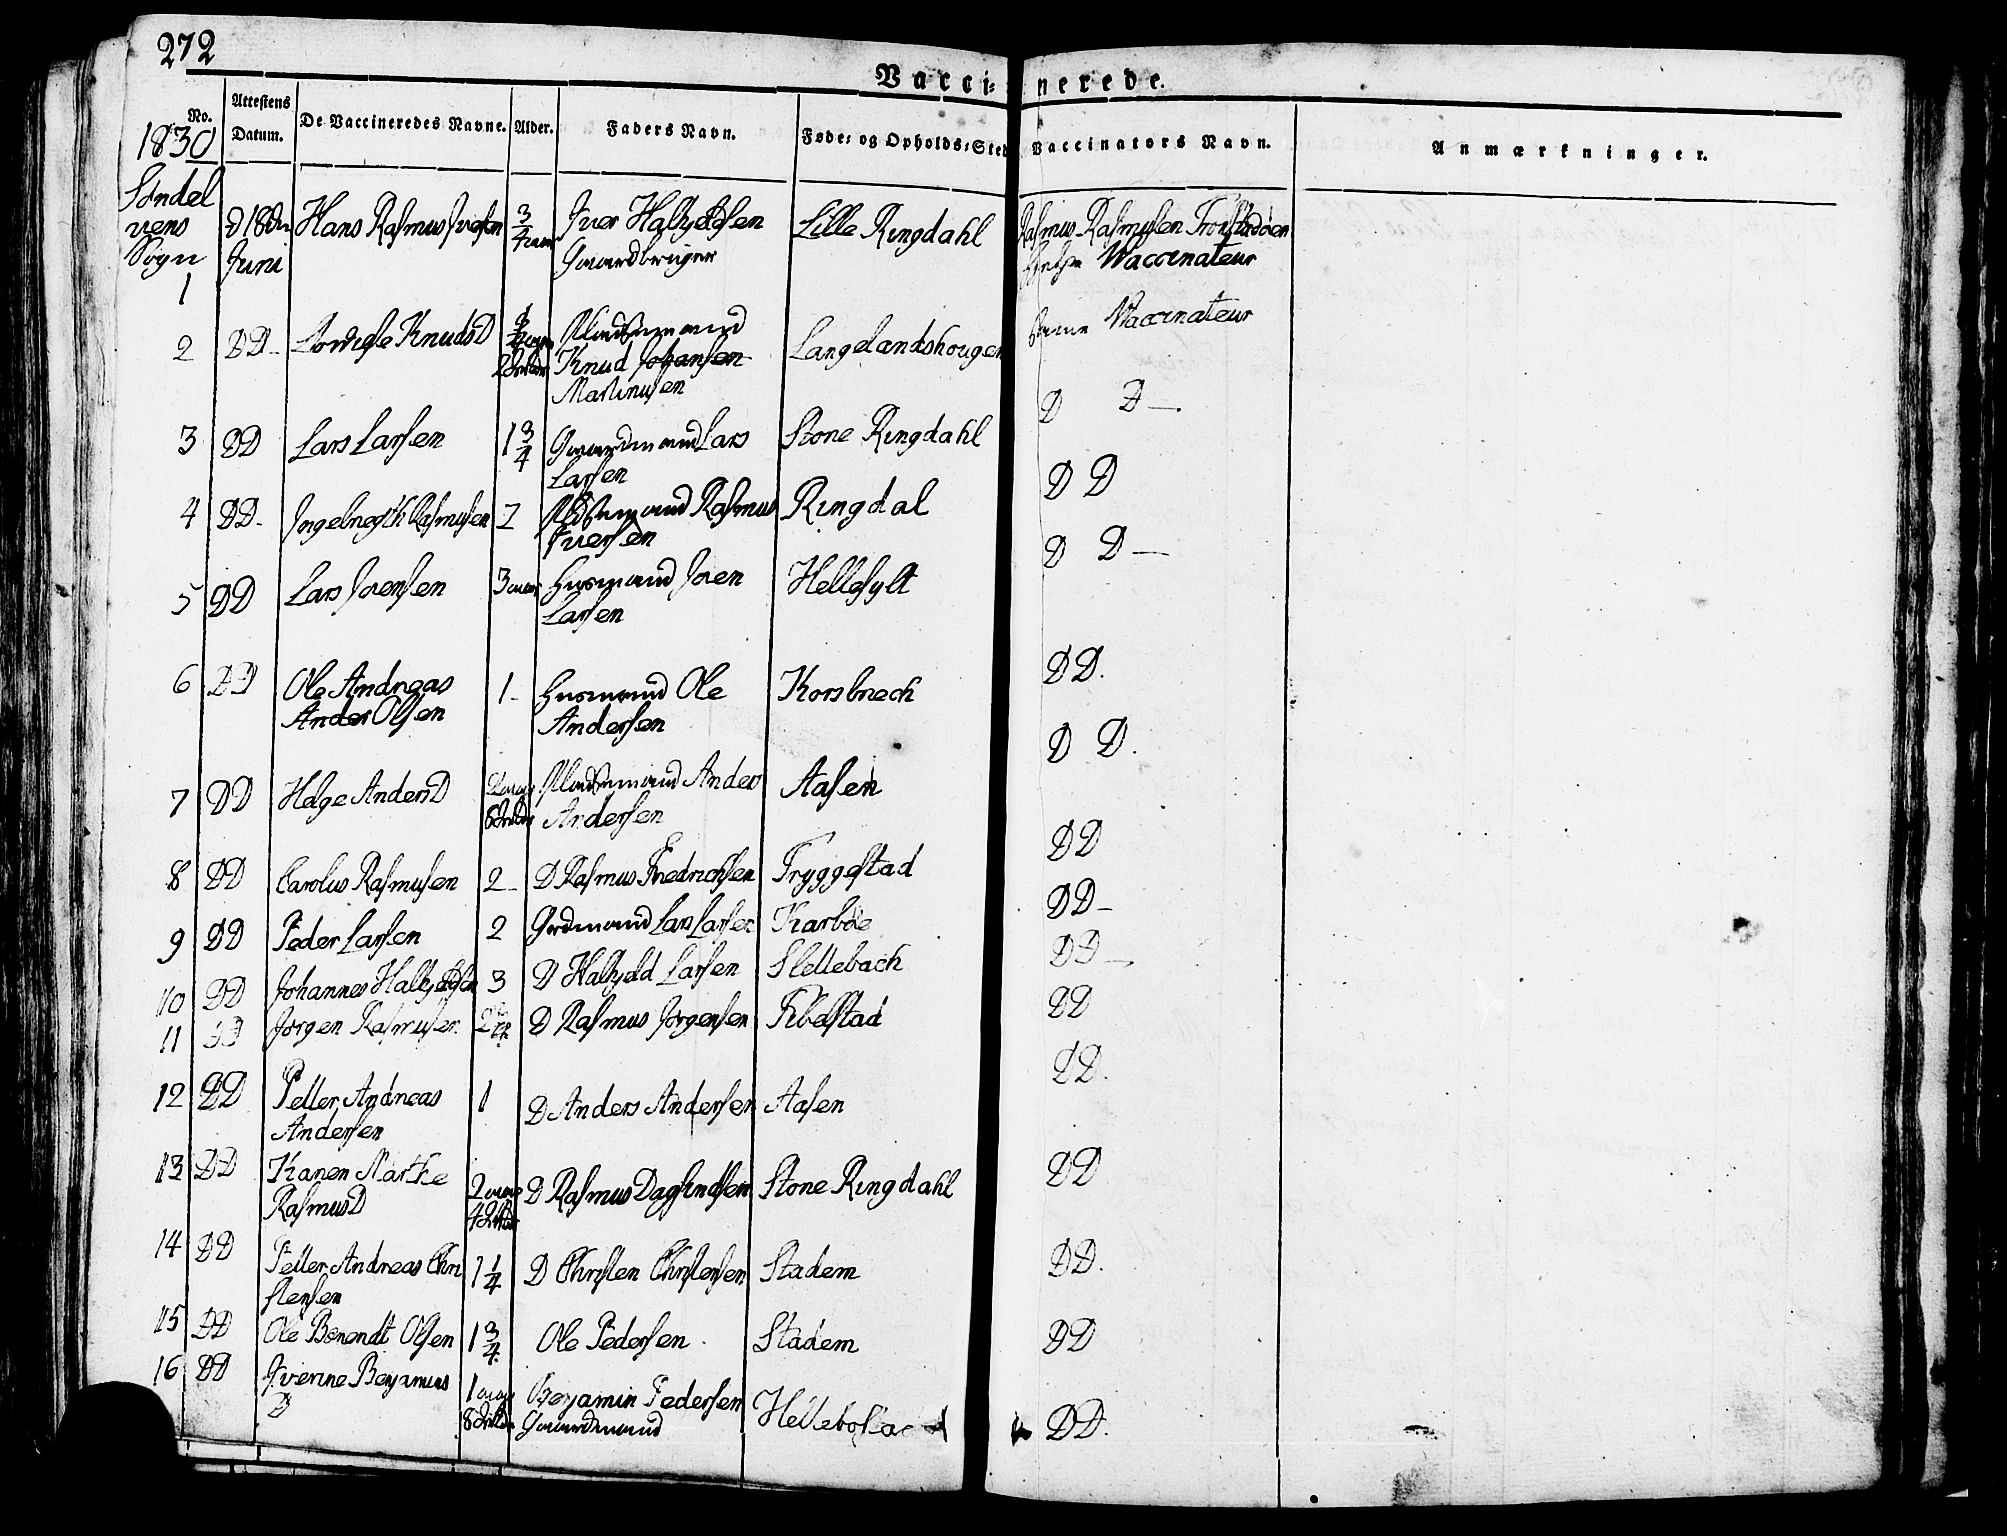 272
Vacci- nerede.
No. Attestens Datum. De Vaccineredes Navne. Alder. Faders Navn. Føde- og Opholds-Sted Vaccinators Navn. Anmærkninger.
1830
Søndel
vens
Sogn
1 D 18de Juni Hans Rasmus Iversen 3/4 aar Iver Halkjeldsen Gaardbruger Lille Ringdahl Rasmus Rasmusen Tronstadøen Vaccinateur
2 DD Lovise Knudsd 2 Knud Johansen Martinusen Langelandshougen samme Vaccinateur
3 DD Lars Larsen 1 3/4 Gaardmand Lars Larsen Store Ringdahl D D
4 DD Ingebregth Rasmusen 1 Pladsemand Rasmus Iversen Ringdal D D
5 DD Lars Iversen 3 aar Husmand Iver Larsen Hellesylt D D
6 DD Ole Andreas Ander Olsen 1 Husmand Ole Andersen Korsbrech DD.
7 DD Helge Andersd 2 aar 8 Pladsemand Ander Andersen Aasen D D.
8 DD Carolus Rasmusen 2 D Rasmus Fredrichsen Tryggestad DD
9 DD Peder Larsen 2 Grdmand Lars Larsen Karbøe DD
10 DD Johannes Halkjeldsen 3 D Halkjeld Larsen Slettebach DD
11 DD Jørgen Rasmusen 2 D Rasmus Jørgensen Fibelstad DD
12 DD Petter Andreas Andersen 1 D Anders Andersen Aasen DD.
13 DD Karen Marthe Rasmusd 2 aar 4 D Rasmus Dagfindsen Store Ringdahl DD
14 DD Petter Andreas Christensen 1 1/4 D Christen Christensen Stadem DD.
15 DD Ole Berendt Olsen 1 3/4 Ole Pedersen. Stadem DD
16 DD Iverine Benjamins D 1 aar 8 Benjamin Pedersen Gaardmand DD.